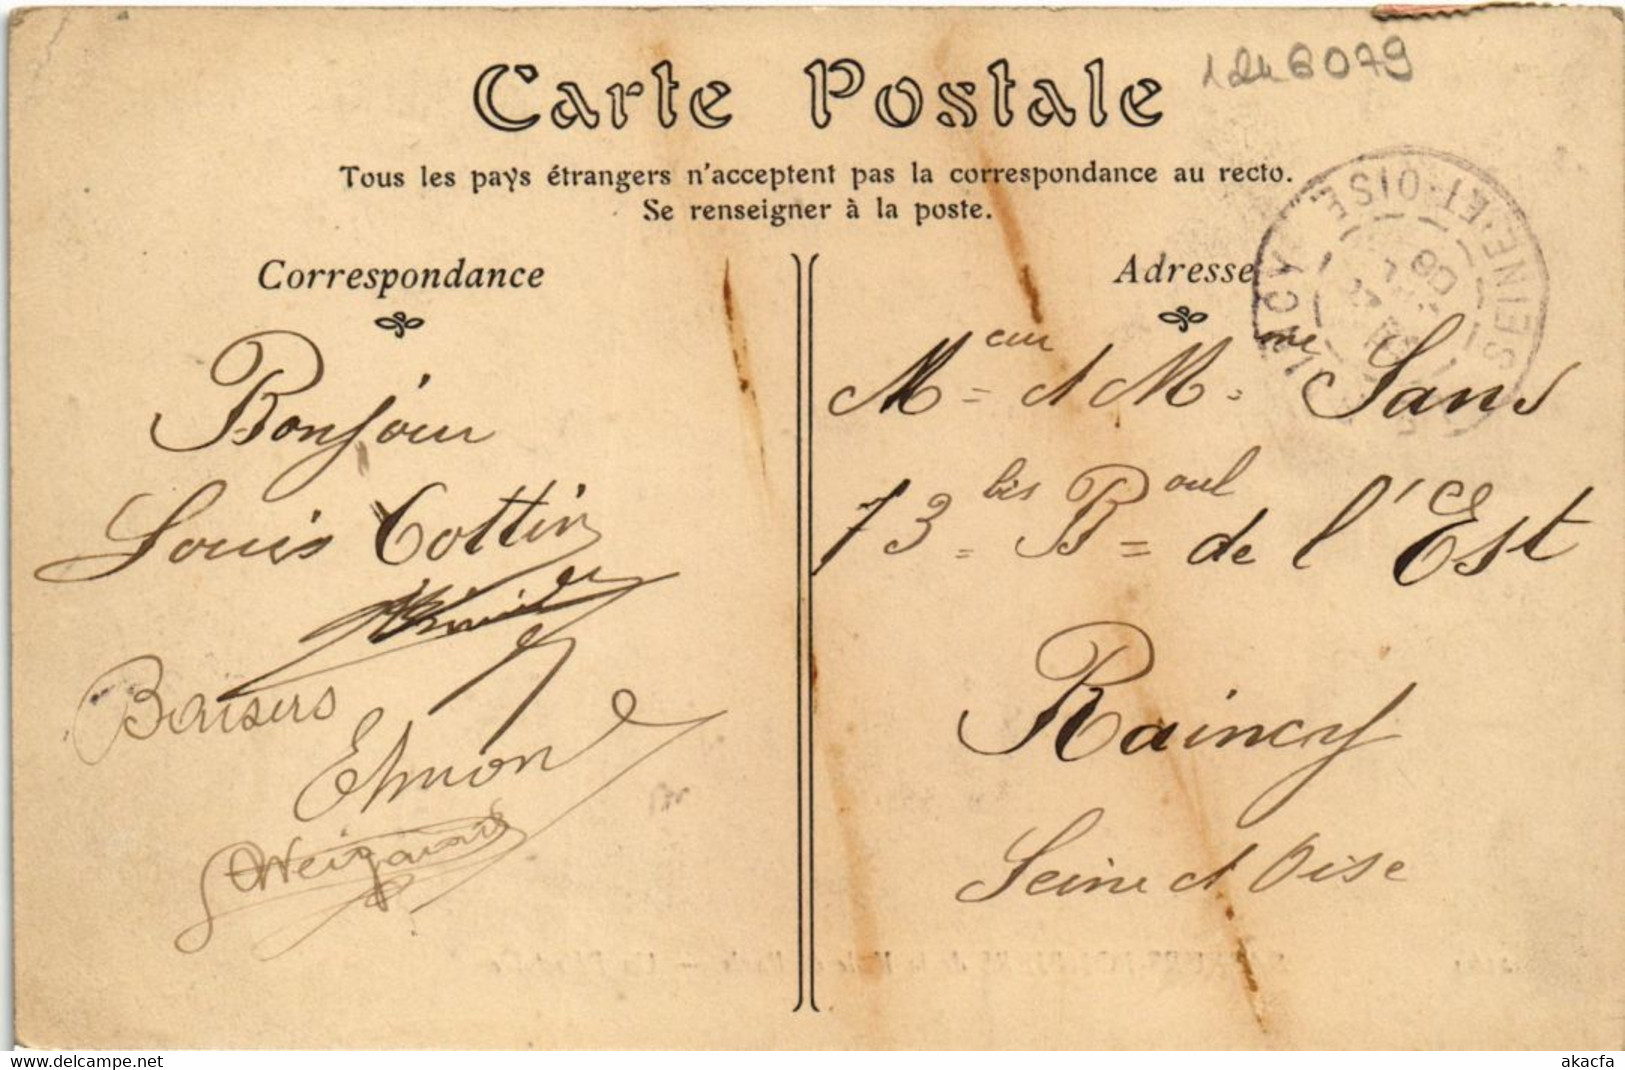 1246079
Carte Postale
Tous les pays étrangers n'acceptent pas la correspondance au recto.
Se renseigner à la poste.
Correspondance
Bonjour
Louis Cottin
Baisers
Edmond
Adresse
SEINE-ET-OISE
08
Mr et Mme Sans
73 bis Boul de l'Est
Raincy
Seine et Oise
www.delcampe.net
akacfa